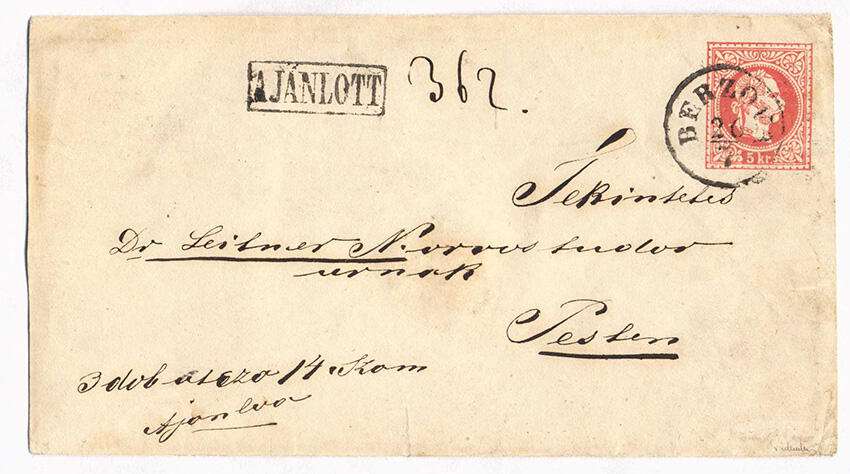 AJÁNLOTT 362.
BERZO
5 kr.
Tekintetes
Dr Leitner N. orvostudor
urnak
Pesten
3 dob utcza 14 Szam
Ajanlva